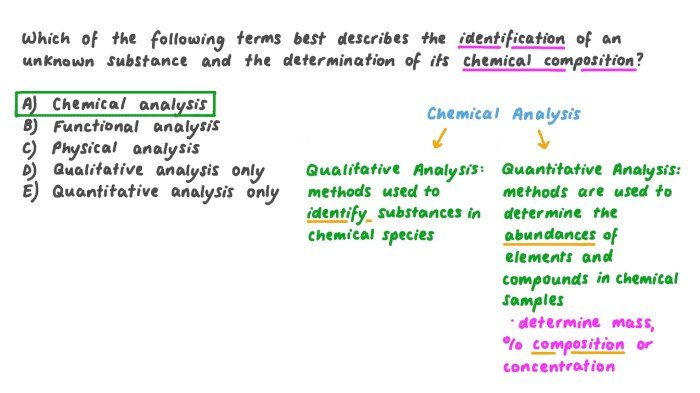 Which of the following terms best describes the identification of an
unknown substance and the determination of its chemical composition?
A) Chemical analysis
B) Functional analysis
C) Physical analysis
D) Qualitative analysis only
E) Quantitative analysis only
Chemical Analysis
Qualitative Analysis:
methods used to
identify substances in
chemical species
Quantitative Analysis:
methods are used to
determine the
abundances of
elements and
compounds in chemical
samples
· determine mass,
% composition or
concentration